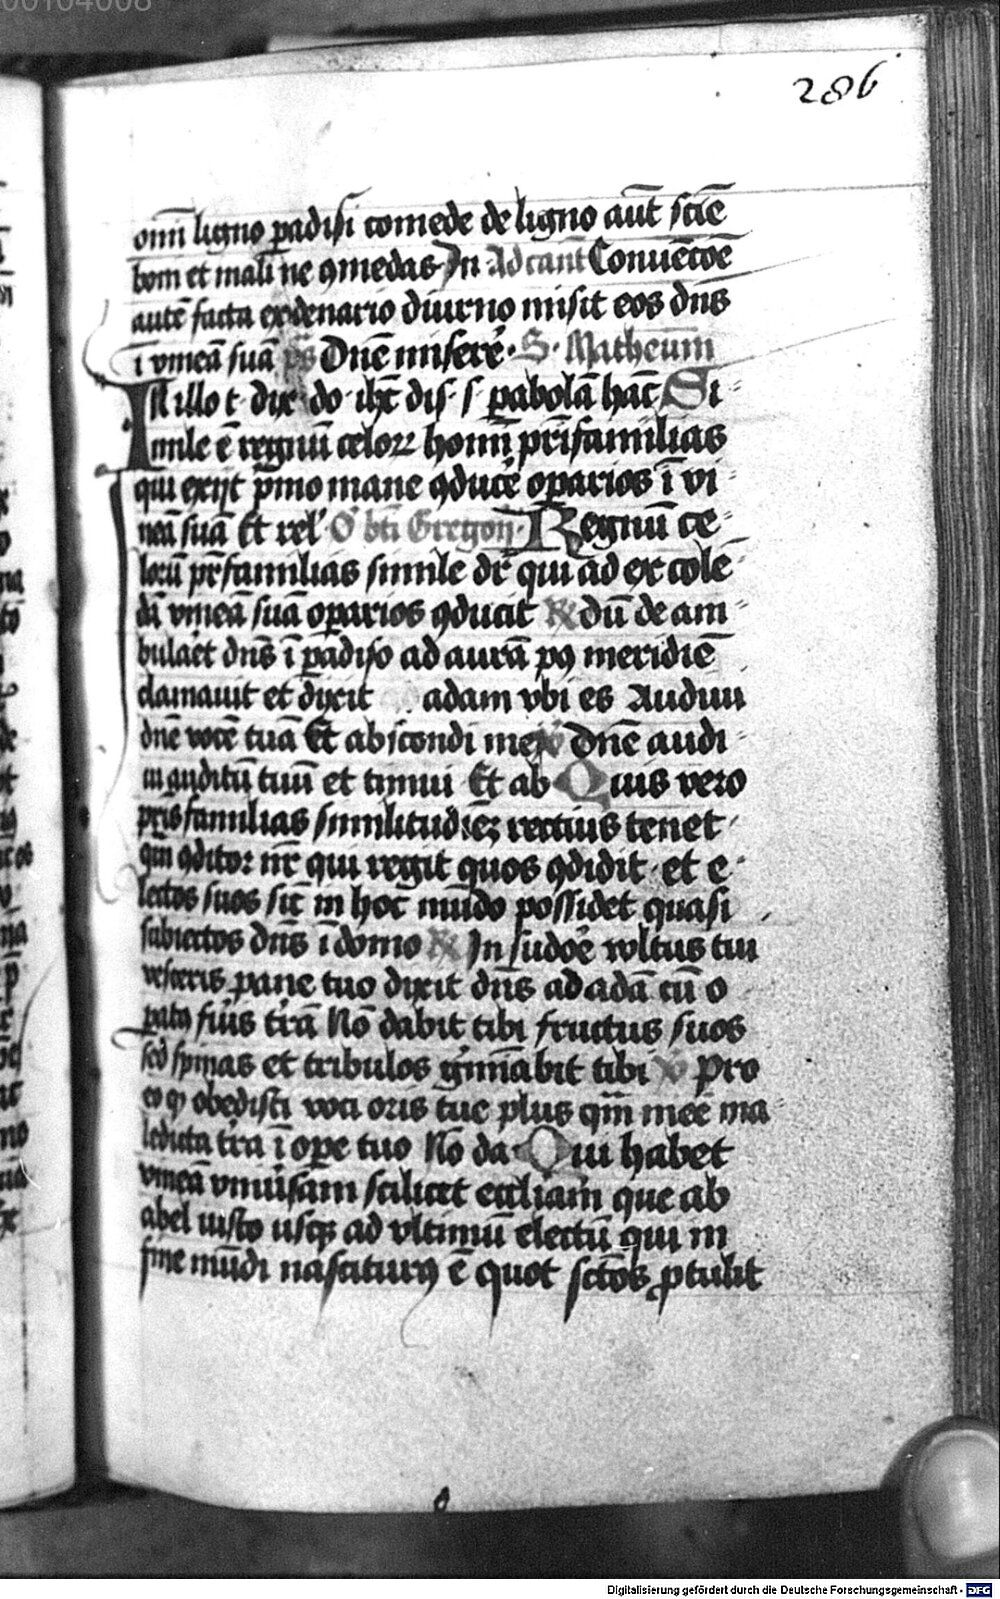 00104008
286
om̄i ligno padisi comede de ligno aūt sciē
boni et mali ne ꝯmedas In Ad cant Conuētōe
autē facta ex denario diurno misit eos dn̄s
ī vineā suā ps Dn̄e miserē · S · Matheum
In illo t · dix · do · ihc̄ dis · s · pabolā hāc Si
mile ē regnū celoꝝ homī pr̄ifamilias
qui exijt pmo mane ꝯducē oparios ī vi
neā suā Et rel O bti Gregorij Regnū ce
lorū pr̄familias simile dr̄ qui ad excolē
dā vineā suā oparios ꝯducit ℟ dū deam
bulaet dn̄s ī padiso ad aurā pꝯ meridiē
clamauit et dixit adam vbi es Audiui
dn̄e vocē tuā Et abscondi me ℣ Dn̄e audi
ui auditū tuū et timui Et ab Quis vero
pr̄isfamilias similitudiēꝫ rectius tenet
qm̄ ꝯditor nr̄ qui regit quos ꝯdidit · et e
lectos suos sic̄ in hoc mūdo possidet quasi
subiectos dn̄s ī domo ℟ In sudoē vultus tui
vesceris pane tuo dixit dn̄s ad adā cū o
patꝯ fūis trā Nō dabit tibi fructus suos
sed spinas et tribulos gmīabit tibi ℣ Pro
eo ꝙ obedisti voci oris tue plus qm̄ mee ma
ledicta tra ī ope tuo Nō da Qui habet
vineā vniūsam scilicet eccliam que ab
abel iusto usqꝫ ad vltimū electū qui in
fine mūdi nasciturꝯ ē quot sctōs ptulit
Digitalisierung gefördert durch die Deutsche Forschungsgemeinschaft - DFG